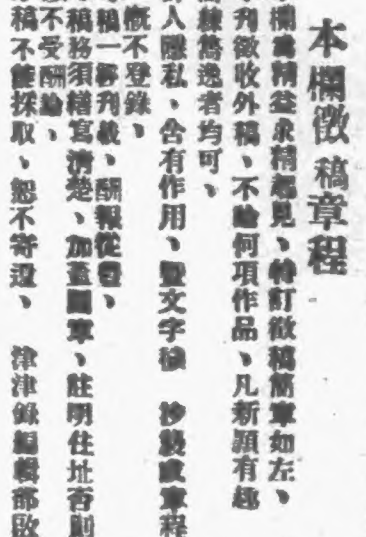 本欄徵稿章程
欄為精益求精起見、特訂徵稿簡章如左、
刊徵收外稿、不論何項作品、凡新穎有趣
雋逸者均可、
人隱私、含有作用、暨文字穢 抄襲或章程
概不登錄、
稿一經刊載、酬報從豐、
稿務須繕寫清楚、加蓋圖章、註明住址否則
不受酬論、
稿不能採取、恕不寄還、 津津錄編輯部啟